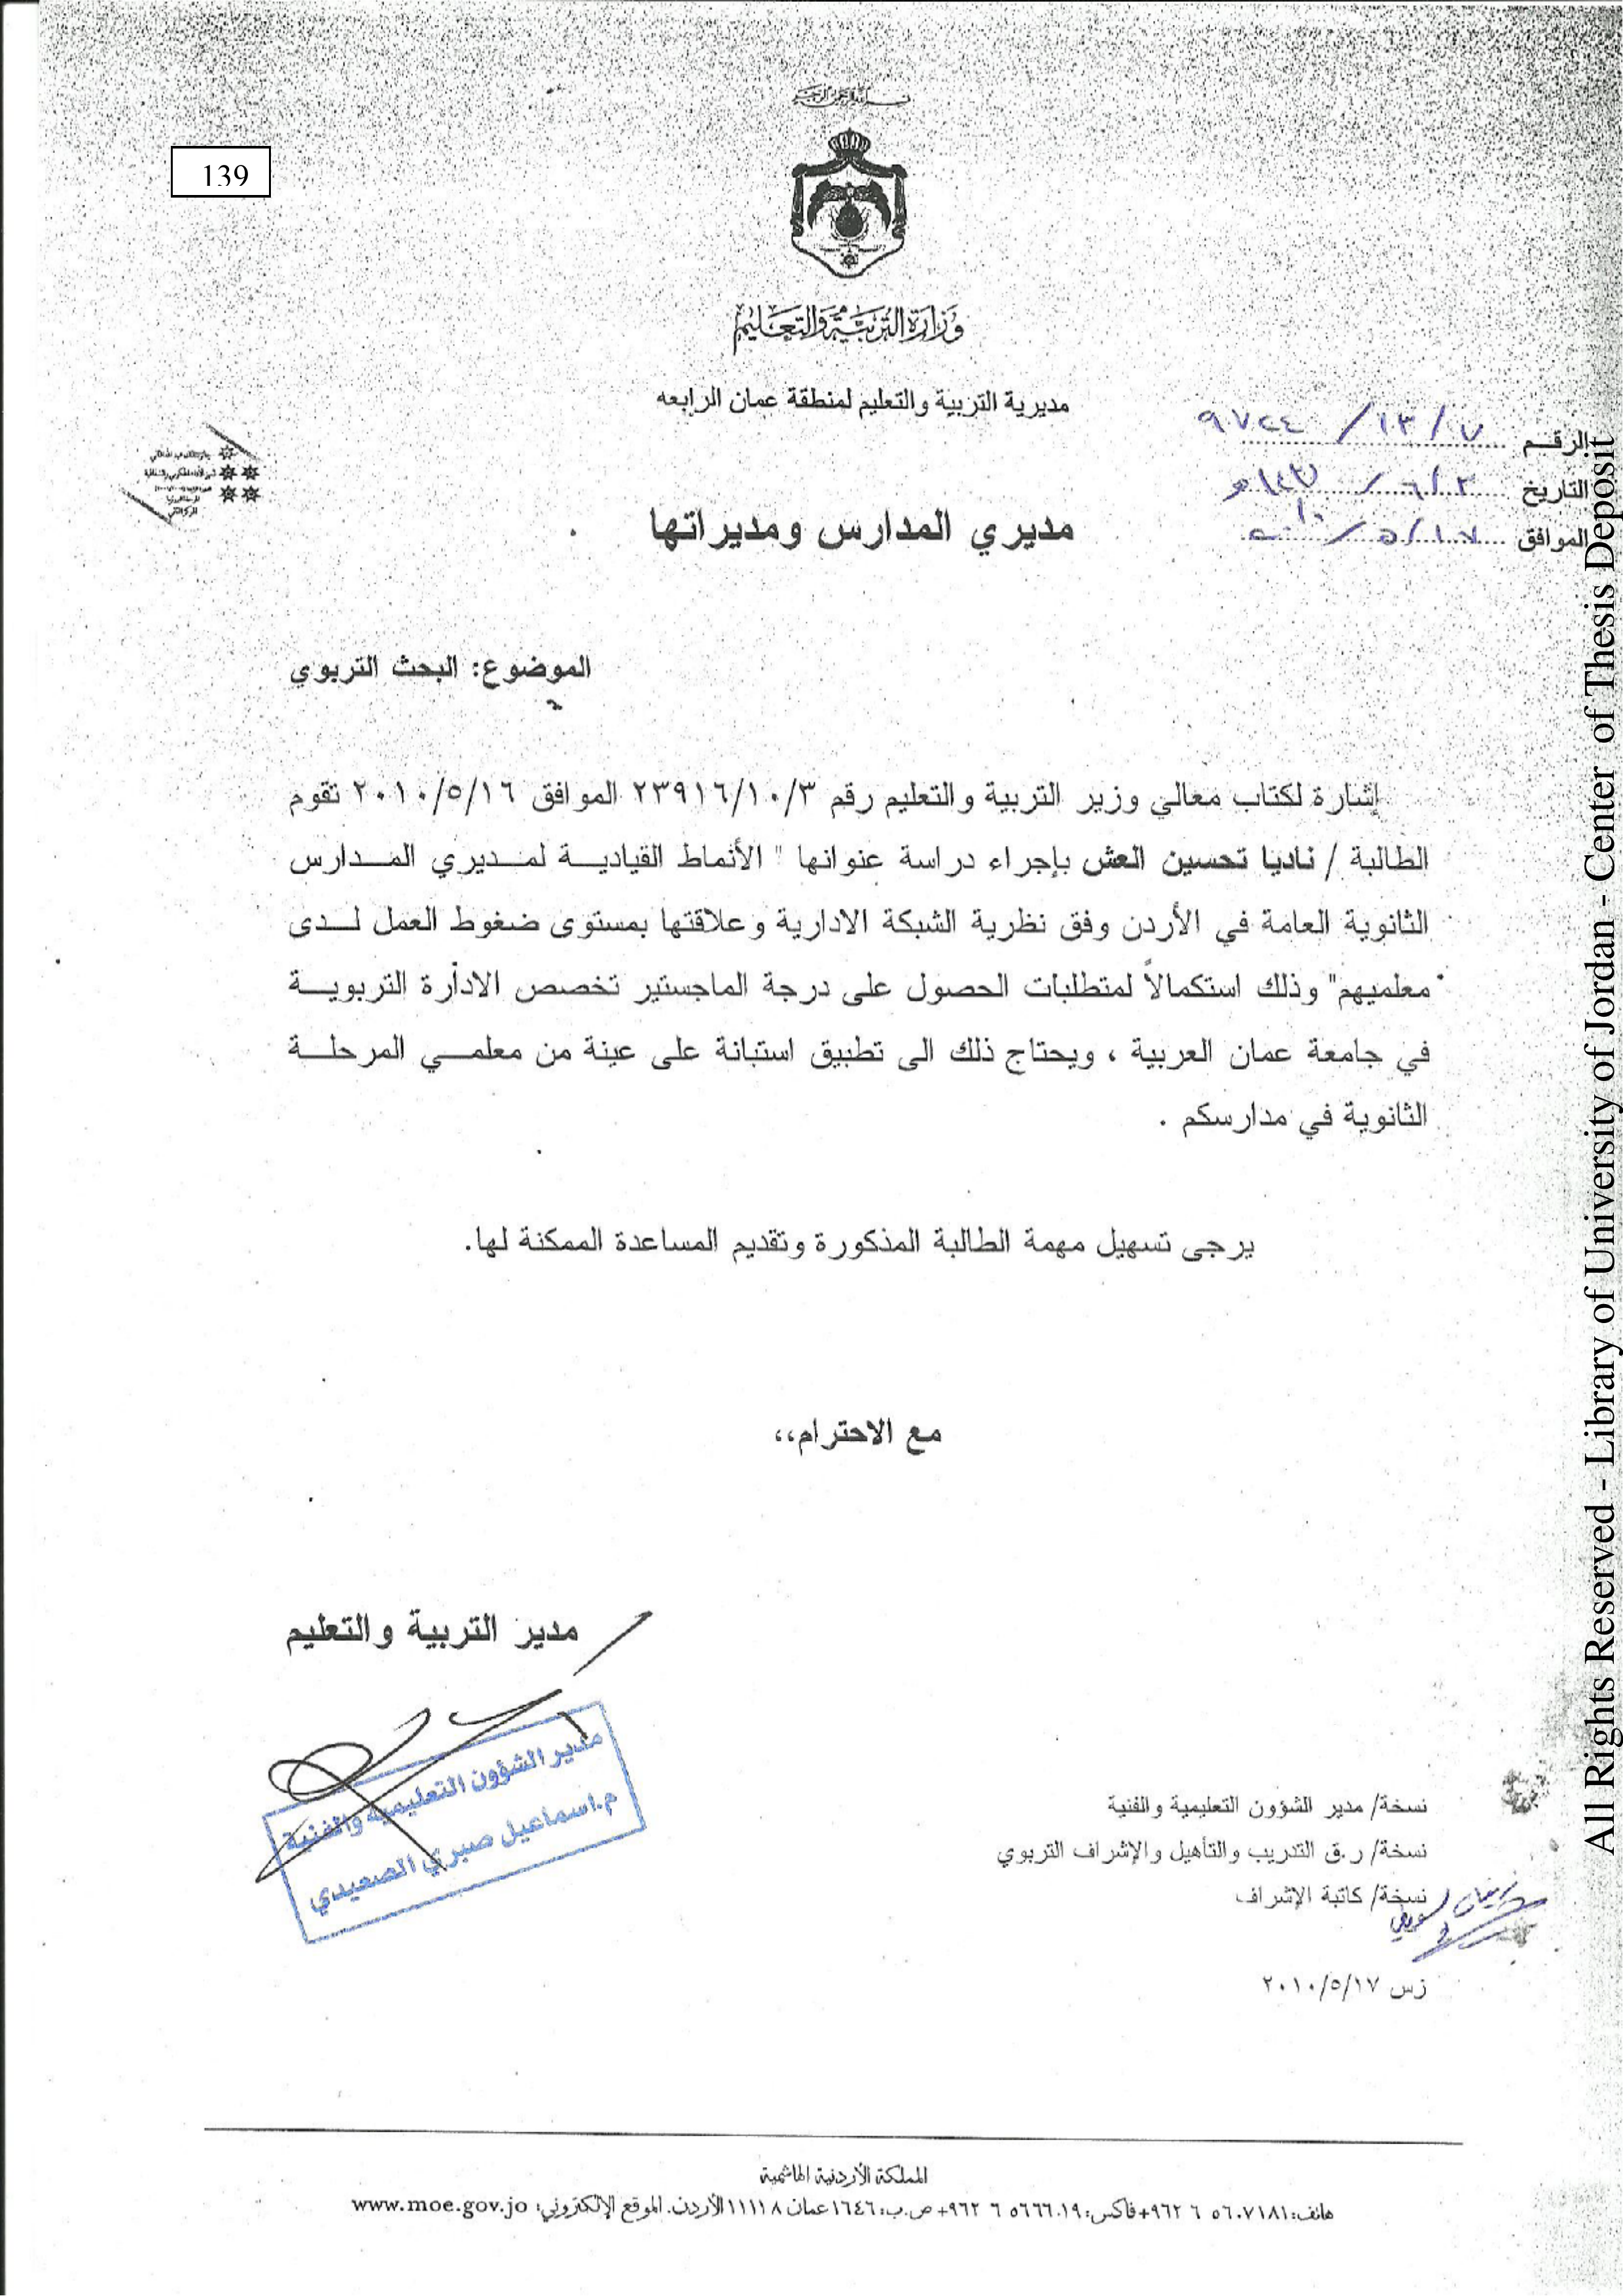 بسم الله الرحمن الرحيم
139
وزارة التربية والتعليم
مديرية التربية والتعليم لمنطقة عمان الرابعه
الرقم ٧/١٣/٩٧٢٤
التاريخ
الموافق ١٧/٥/
مديري المدارس ومديراتها
الموضوع: البحث التربوي
إشارة لكتاب معالي وزير التربية والتعليم رقم ٢٣٩١٦/١٠/٣ الموافق ٢٠١٠/٥/١٦ تقوم
الطالبة / ناديا تحسين العش بإجراء دراسة عنوانها " الأنماط القيادية لمديري المدارس
الثانوية العامة في الأردن وفق نظرية الشبكة الادارية وعلاقتها بمستوى ضغوط العمل لدى
معلميهم" وذلك استكمالاً لمتطلبات الحصول على درجة الماجستير تخصص الادأرة التربوية
في جامعة عمان العربية ، ويحتاج ذلك الى تطبيق استبانة على عينة من معلمي المرحلة
الثانوية في مدارسكم .
يرجى تسهيل مهمة الطالبة المذكورة وتقديم المساعدة الممكنة لها.
مع الاحترام،،
مدير التربية والتعليم
مدير الشؤون التعليمية والفنية
م.اسماعيل صبري الصعيدي
نسخة/ مدير الشؤون التعليمية والفنية
نسخة/ ر.ق التدريب والتأهيل والإشراف التربوي
نسخة/ كاتبة الإشراف
زس ٢٠١٠/٥/١٧
المملكة الأردنية الهاشمية
هاتف: ٥٦٠٧١٨١ ٦ ٩٦٢+ فاكس: ٥٦٦٦٠١٩ ٦ ٩٦٢+ ص.ب: ١٦٤٦ عمان ١١١١٨ الأردن. الموقع الإلكتروني: www.moe.gov.jo
All Rights Reserved - Library of University of Jordan - Center of Thesis Deposit